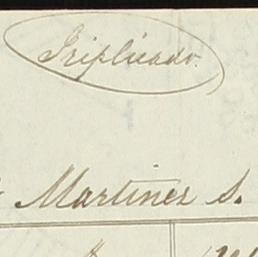 Triplicado.
Martinez S.